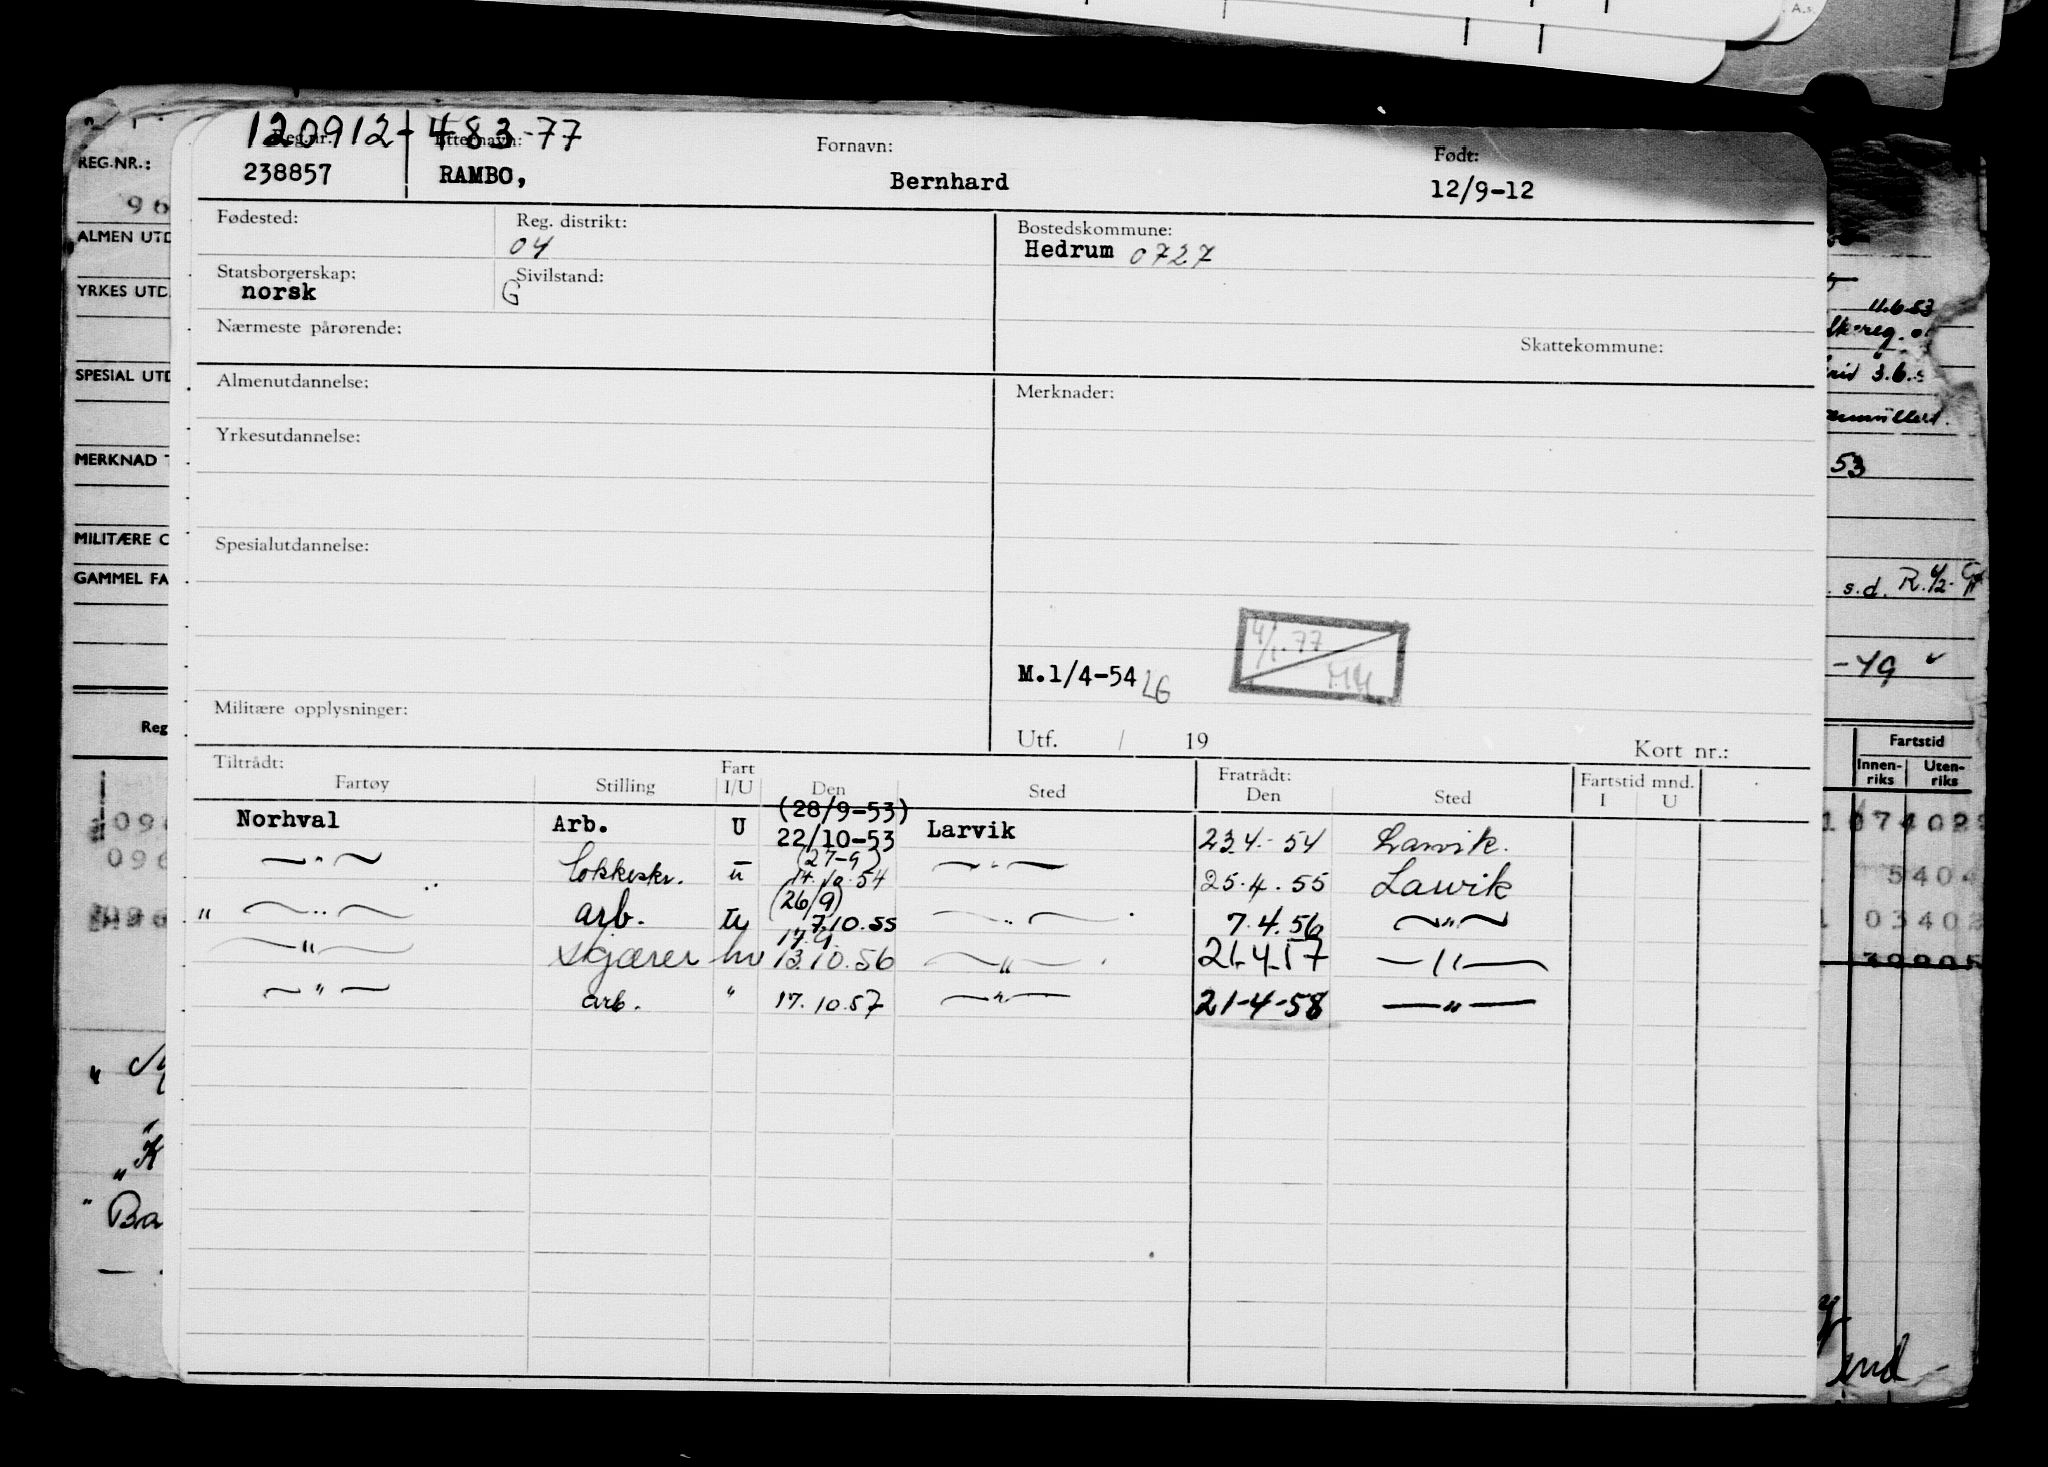 A.s.
120912-483-77
Reg.nr. Etternavn: Fornavn: Født:
238857 RAMBO, Bernhard 12/9-12
Fødested: Reg. distrikt: Bostedskommune:
04 Hedrum 0727
Statsborgerskap: Sivilstand:
norsk G
Nærmeste pårørende: Skattekommune:
Almenutdannelse: Merknader:
Yrkesutdannelse:
Spesialutdannelse:
4/1.77
M.1/4-54 LG
Militære opplysninger:
Utf. / 19 Kort nr.:
Tiltrådt: Fratrådt:
Fartøy Stilling Fart I/U Den Sted Den Sted Fartstid mnd. I U
Norhval Arb. U (28/9-53) 22/10-53 Larvik 23.4.-54 Larvik.
—"— kokkeskr. u (27-9) 14.10.54 —"— 25.4.55 Larvik
" —"— arb. u (26/9) 7.10.55 —"— 7.4.56 —"—
—"— skjærer hv 17.9. 13.10.56 —"— 21.4.57 —"—
—"— arb. " 17.10.57 —"— 21-4-58 —"—
REG.NR.:
96
ALMEN UTD
YRKES UTD.
SPESIAL UTD
MERKNAD
MILITÆRE O
GAMMEL FA
Reg
096
096
" K
" Ba
11.6.53
3.6.
53
s.d. R. 1/2-
-49
Fartstid
Innenriks Utenriks